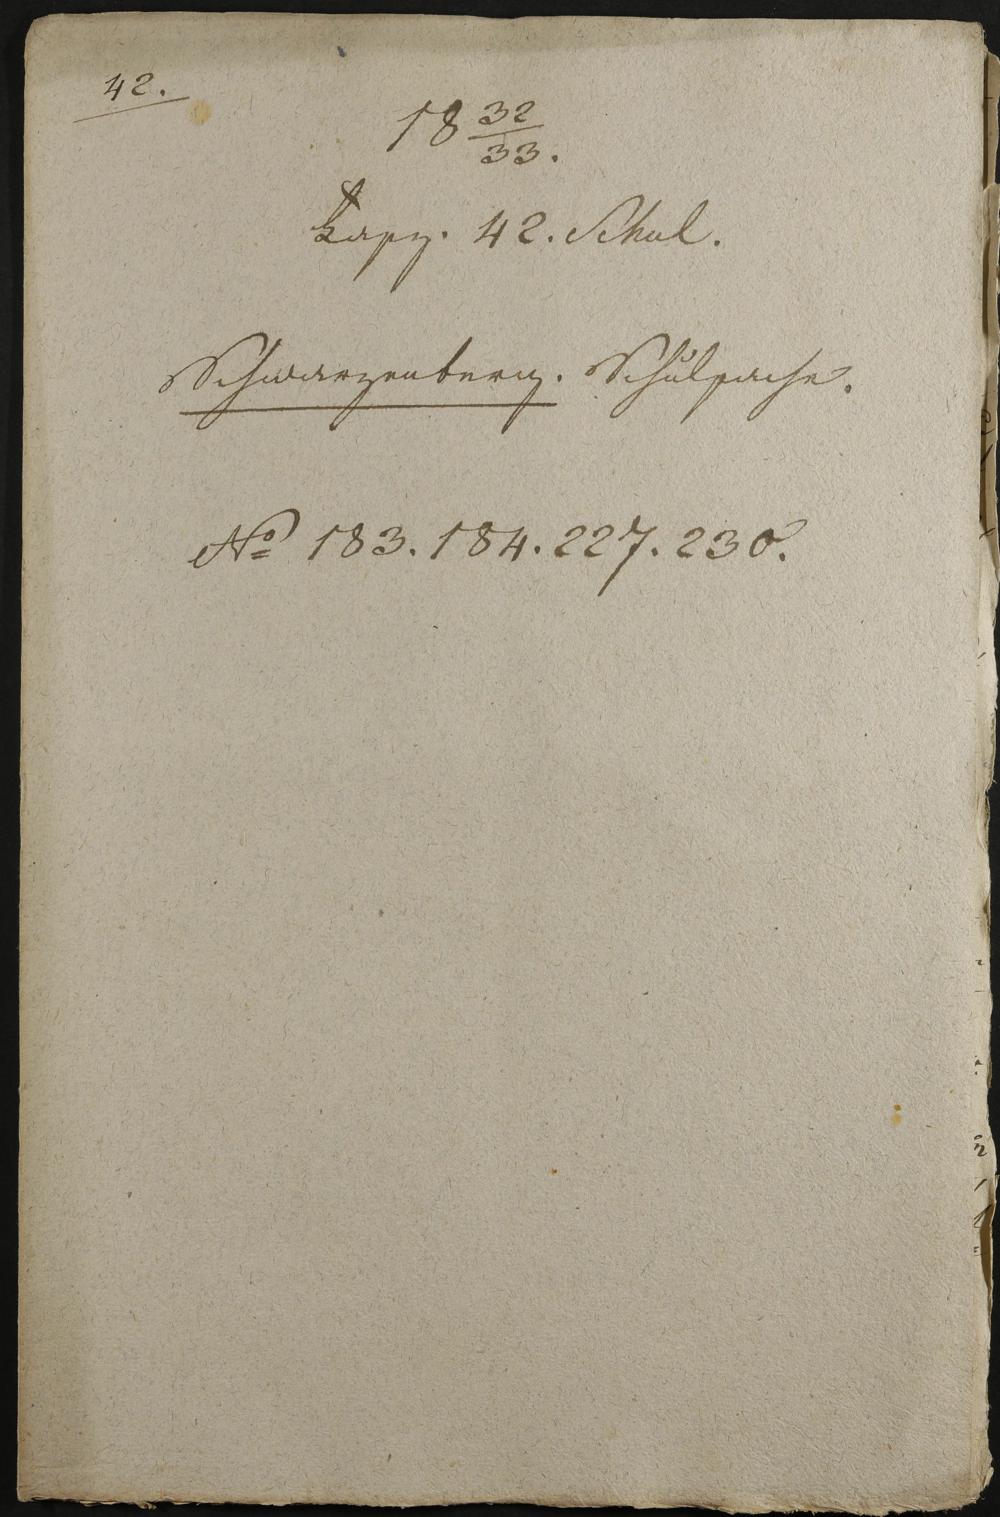 42.
18 32/33.
Fasz. 42. Schul.
Schwarzenberg. Schulsache.
No 183. 184. 227. 230.